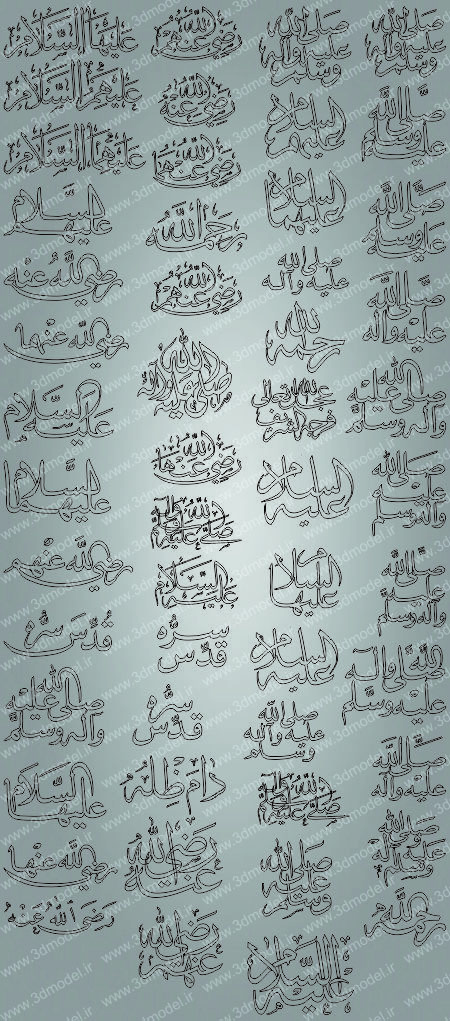 صلی الله علیه وآله وسلم
صلی الله علیه وسلم
صلی الله علیه وسلم
صلی الله علیه وآله
صلی الله علیه وآله وسلم
صلی الله علیه وآله وسلم
صلی الله علیه وآله وسلم
صلی الله علیه وآله وسلم
صلی الله علیه وآله
صلی الله علیه وآله وسلم
رحمه الله
صلی الله علیه وآله وسلم
السلام علیهم
السلام علیهما
صلی الله علیه وآله
رحمه الله
عجل الله تعالی فرجه الشریف
السلام علیه
السلام علیها
السلام علیه
صلی الله علیه وآله وسلم
صلی الله علیه وسلم
السلام علیه
رضی الله عنهم
رضی الله عنه
رضی الله عنها
رحمه الله
رضی الله عنهم
رضی الله عنهما
علیه السلام
قدس سره
قدس سره
دام ظله
رضی الله عنه
رضی الله عنهم
علیها السلام
علیهم السلام
علیهما السلام
علیهم السلام
رضی الله عنه
رضی الله عنهما
علیه السلام
علیهما السلام
رضی الله عنهم
قدس سره
صلی الله علیه وآله وسلم
علیها السلام
رضی الله عنها
رضی الله عنه
www.3dmodel.ir